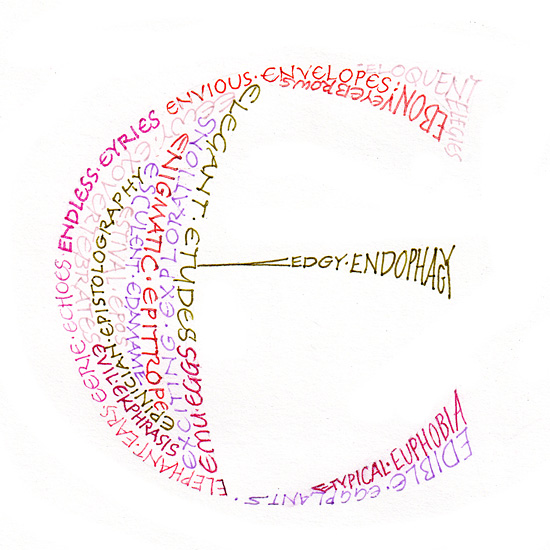 ELOQUENT ELEGIES
ENVIOUS·ENVELOPES:
EYEBROWS
EBONY
ENDLESS·EYRIES
EERIE·ECHOES
ELEPHANT·EARS
EPISTOLOGRAPHY
EPINICIAN
EKPHRASIS
ESCULENT·EDAMAME
ENIGMATIC·EPITROPE
EXCITING·EXPLORATIONS
ELEGANT·ETUDES
EMU·EGGS
EDGY·ENDOPHAGY
TYPICAL·EUPHOBIA
EDIBLE·EGGPLANTS·